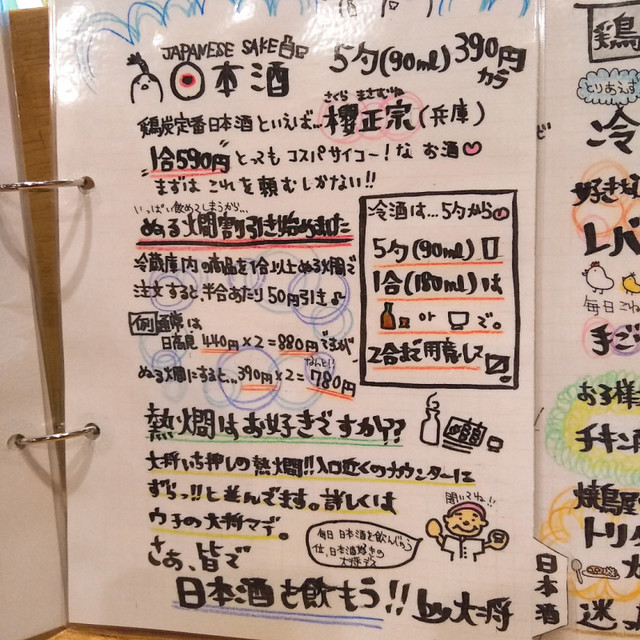 JAPANESE SAKE
日本酒
5勺(90ml) 390円
カラ
さくら まさむね
鶏炭定番日本酒といえば… 櫻正宗(兵庫)
1合590円 とっても コスパサイコー!な お酒
まずは これを頼むしかない!!
いっぱい飲めてしまうから…
ぬる燗割引き始めました
冷蔵庫内の商品を1合以上ぬる燗で
注文すると、半合あたり50円引き♪
例 通常は
日高見 440円×2=880円ですが
なんと!?
ぬる燗にすると…390円×2=780円
冷酒は…5勺から
5勺(90ml)
1合(180ml)は
or で。
2合まで用意して
熱燗はお好きですか??
大将いち押しの熱燗!!入口近くのカウンターに
ずらっ!!と並んでます。詳しくは
ウチの大将マデ。
聞いてね!!
毎日日本酒を飲んじゃう
位、日本酒好きの
大将デス
さあ、皆で
日本酒を飲もう!! by大将
日本酒
鶏
とりあえず
冷
好きな
レバ
毎日こね
手ご
お子様
チキン
焼鳥屋
トリ
迷っ